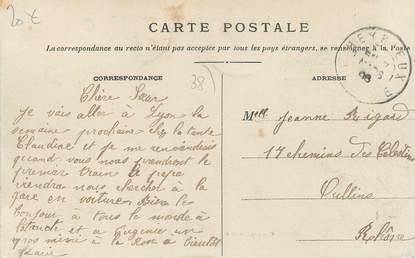 20 €
CARTE POSTALE
La correspondance au recto n'étant pas acceptée par tous les pays étrangers, se renseigner à la Poste
CORRESPONDANCE
38
ADRESSE
Chère Sœur
je vais aller à Lyon la
semaine prochaine chez la tante
Claudine et je me reviendrais
quand vous nous prendrons le
premier train le papa
viendras nous chercher à la
gare en voiture
bonjour à tous le monde à
et a Eugénie un
gros mimi à la Rose a bientôt
Melle Jeanne Rigard
17 chemins des Célestins
Oullins
Rhône